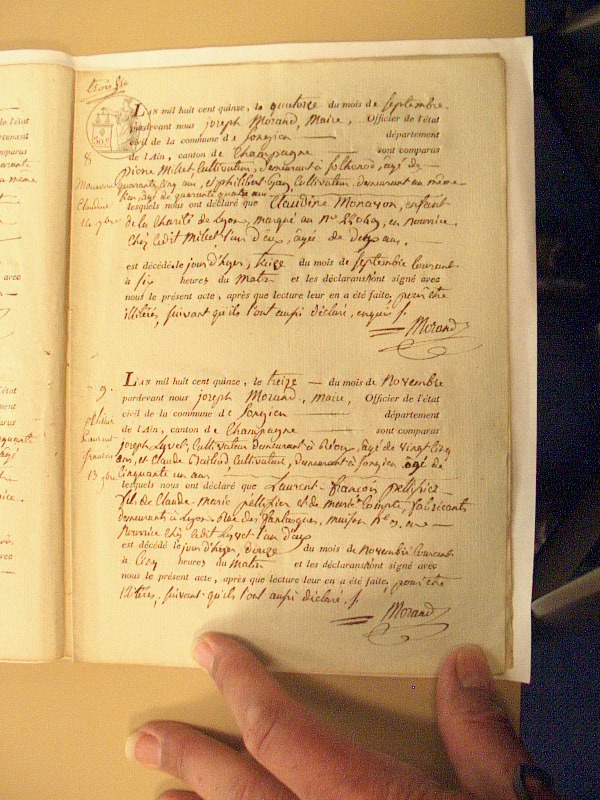 L'an mil huit cent quinze, le quatorze du mois de septembre
pardevant nous joseph Morand, Maire, Officier de l'état
civil de la commune de Songieu département
de l'Ain, canton de Champagne sont comparus
8
pierre Milet, Cultivateur, demeurant à fothonod, âgé de
quarante cinq ans, et philibert Gay, Cultivateur, demeurant au même
lieu, âgé de quarante quatre ans
Claudine
lesquels nous ont déclaré que Claudine Monavon, enfant
de la Charité de Lyon, marqué au N° en nourrice
Chez ledit Milet l'un d'eux, âgée de deux ans.
est décédée le jour d'hyer, treize du mois de septembre Courant
à six heures du Matin et les déclarans ont signé avec
nous le présent acte, après que lecture leur en a été faite, pour être
illitérés, suivant qu'ils l'ont aussi déclaré, enquis /.
Morand
L'an mil huit cent quinze, le treize du mois de Novembre
9.
pardevant nous joseph Morand, Maire, Officier de l'état
civil de la commune de Songieu département
de l'Ain, canton de Champagne sont comparus
joseph Lyvet, Cultivateur demeurant à âgé de vingt Cinq
Laurent
ans, et Claude Cultivateur, demeurant à Songieu, âgé de
françois
cinquante un ans
13 9bre
lesquels nous ont déclaré que Laurent françois pellissier
fils de Claude marie pellissier et de marie Compte, fabricants
demeurants à Lyon Rue des maison n° 9. en
Nourrice Chez ledit Lyvet l'un d'eux
est décédé le jour d'hyer, douze du mois de Novembre Courant
à Cinq heures du Matin et les déclarans ont signé avec
nous le présent acte, après que lecture leur en a été faite, pour être
illitérés, suivant qu'ils l'ont aussi déclaré /.
Morand